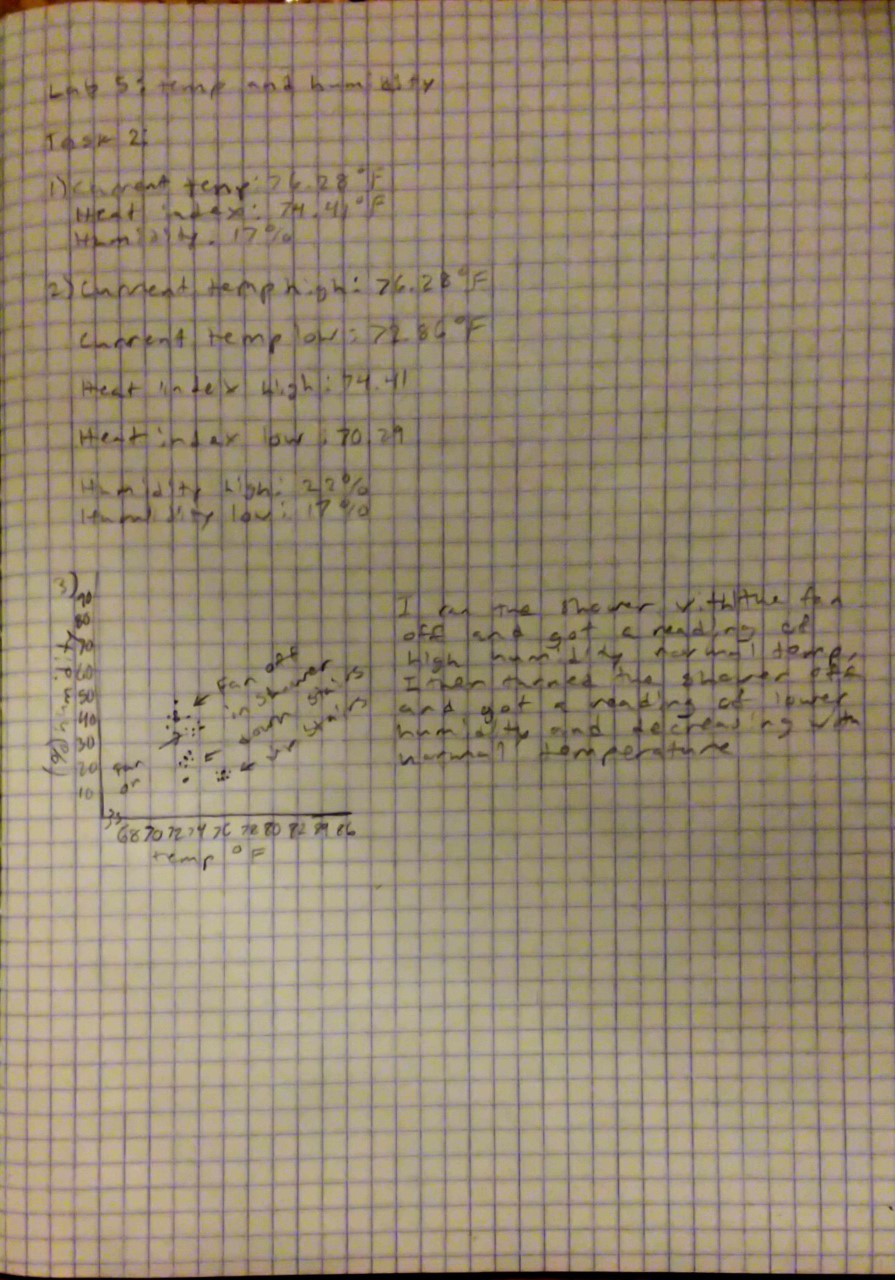 Lab 5: temp and humidity
Task 2:
1) Current temp: 76.28°F
Heat index: 74.41°F
Humidity: 17%
2) Current temp high: 76.28°F
Current temp low: 72.86°F
Heat index high: 74.41
Heat index low: 70.29
Humidity high: 22%
Humidity low: 17%
3)
90
80
70
60
50
40
30
20
10
humidity (%)
fan off
in shower
down stairs
up stairs
fan
on
68 70 72 74 76 78 80 82 84 86
temp °F
I ran the shower with the fan
off and got a reading of
high humidity normal temp.
I then turned the shower off
and got a reading of lower
humidity and decreasing with
normal temperature